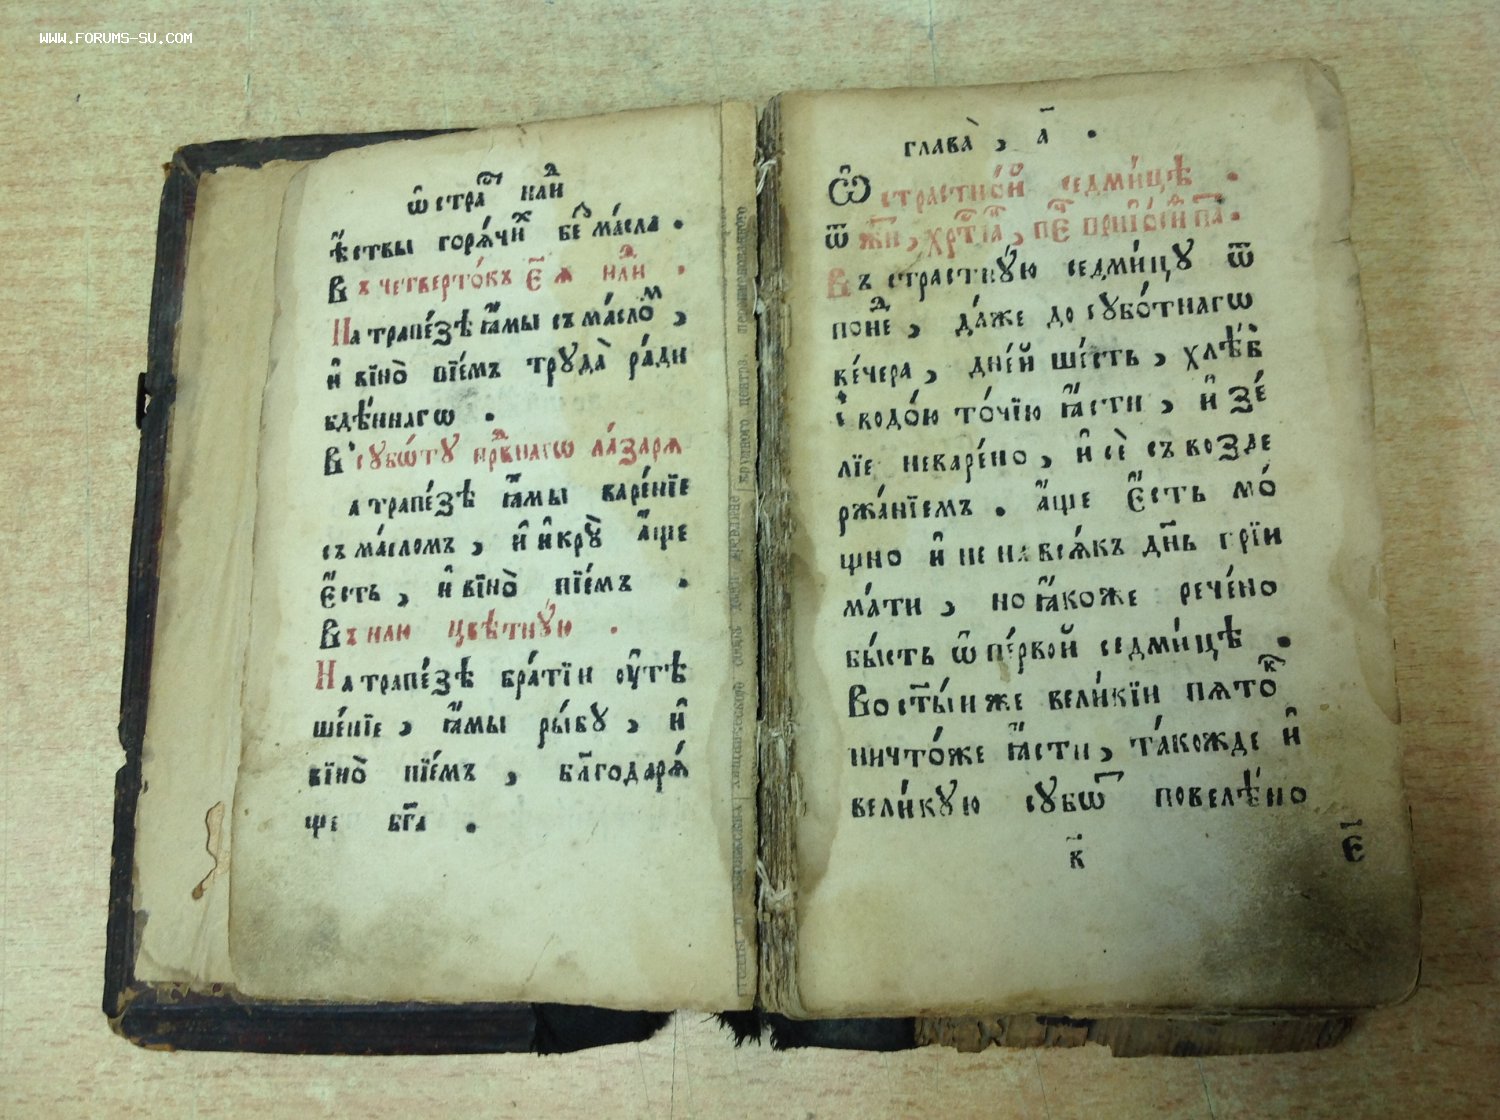 WWW.FORUMS-SU.COM
ѽ страⷭ҇ нлⷣи
ꙗ҆́ствы горѧ́чиⷯ беⷥ ма́сла .
Въ четверто́къ є҃ ѧ нлⷣи .
На трапе́зѣ ꙗ҆мы̀ съ ма́сломⷨ ,
и҆ вїно̀ пїе́мъ трꙋда̀ ра́ди
бдѣ́ннагѡ .
В сꙋбѡ́тꙋ првⷣнагѡ ла́зарѧ
а трапе́зѣ ꙗ҆мы̀ варе́нїе
съ ма́сломъ , и҆ и҆крꙋ̀ а҆́ще
є҆́сть , и҆ вїно̀ пїе́мъ .
Въ нлю цвѣтнꙋ́ю .
На трапе́зѣ бра́тїи ᲂу҆тѣ
ше́нїе , ꙗ҆мы̀ ры́бꙋ , и҆
вїно̀ пїе́мъ , бл҃годарѧ́
ще бг҃а .
глава̀ , а҃ .
Ѽ страстно́й седми́цѣ .
Въ страстнꙋ́ю седми́цꙋ ѿ
понеⷣ , да́же до сꙋбо́тнагѡ
ве́чера , дне́й ше́сть , хлѣ́б
і҆ водо́ю то́чїю ꙗ҆́сти , и҆ зе́
лїе неваре́но , и҆ сѐ съ возде
ржа́нїемъ . а҆́ще є҆́сть мо́
щно и҆ не на всѧ́къ дн҃ь прїи
ма́ти , но ꙗ҆́коже рече́но
бы́сть ѽ пе́рвой седми́цѣ .
Во ст҃ы́и же вели́кїи пѧто́ⷦ
ничто́же ꙗ҆́сти , та́кожде и҆
вели́кꙋю сꙋбѡⷮ повелѣ́но
к҃
є҃